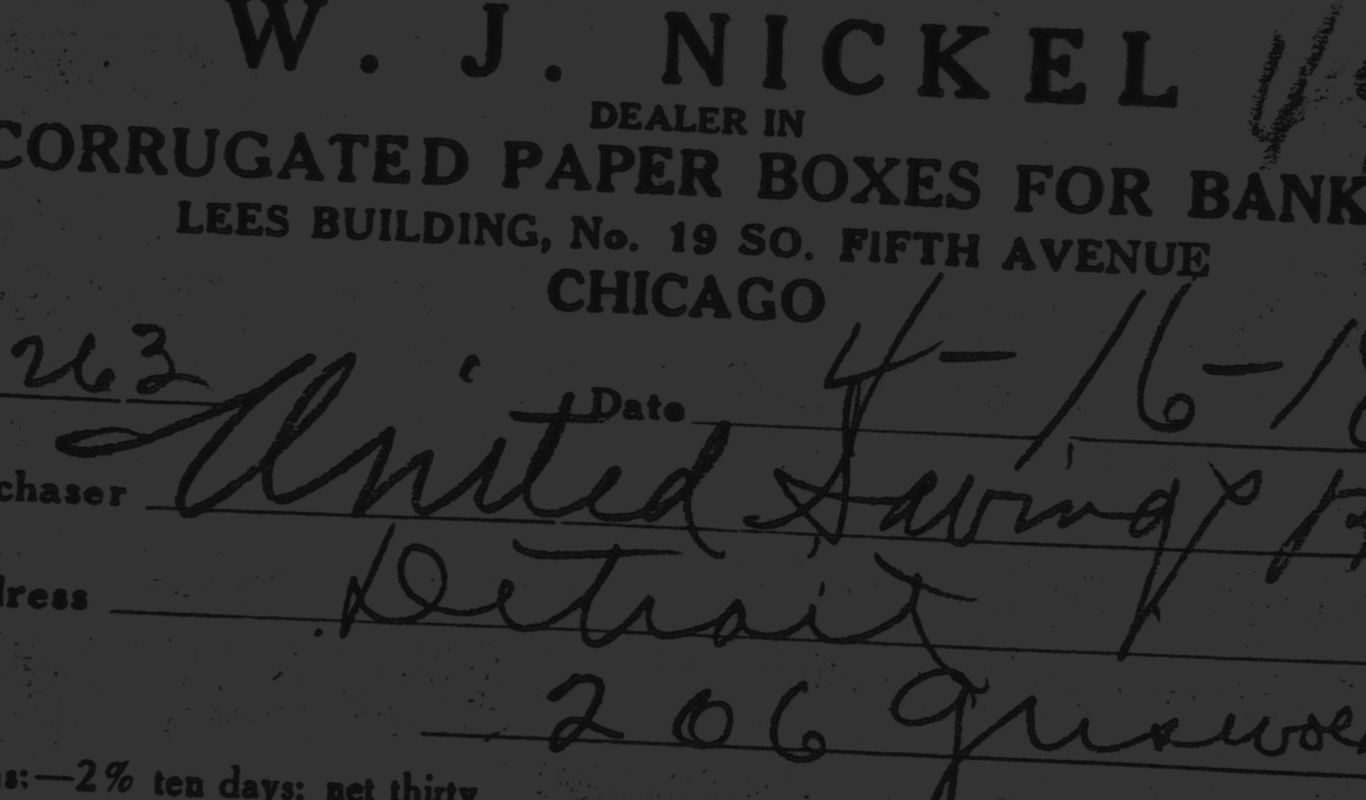 W. J. NICKEL
DEALER IN
CORRUGATED PAPER BOXES FOR BANK
LEES BUILDING, No. 19 SO. FIFTH AVENUE
CHICAGO
263
Date 4-16-1
chaser United Savings B
dress Detroit
206 Griswol
s:—2% ten days; net thirty